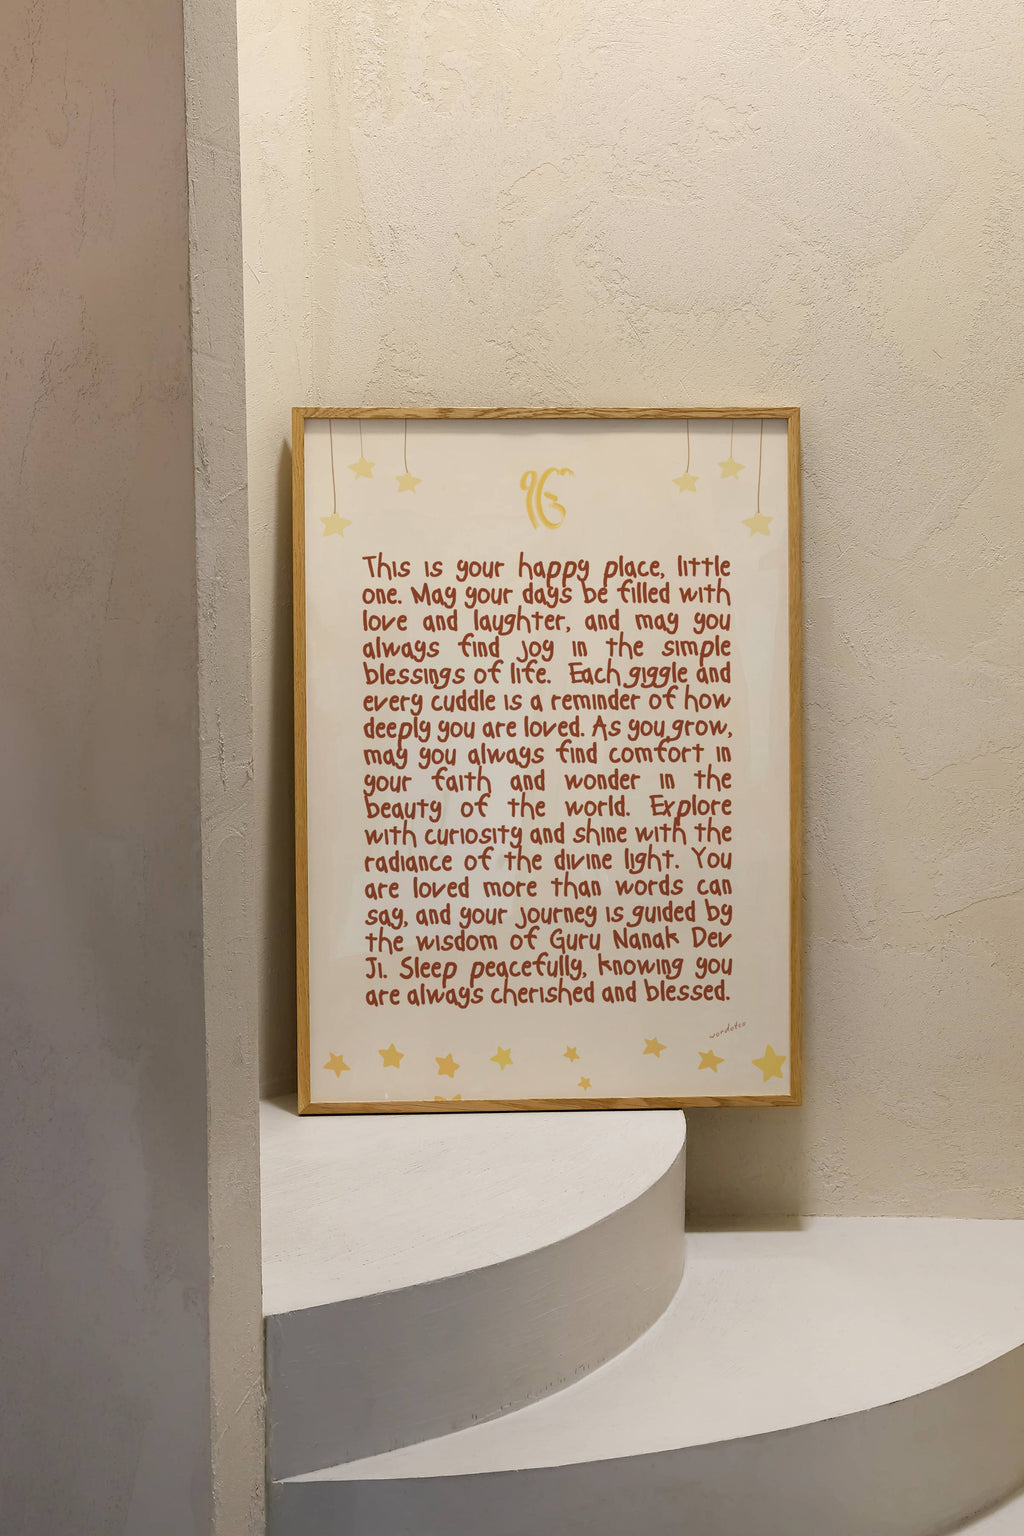 ੴ
This is your happy place, little
one. May your days be filled with
love and laughter, and may you
always find joy in the simple
blessings of life. Each giggle and
every cuddle is a reminder of how
deeply you are loved. As you grow,
may you always find comfort in
your faith and wonder in the
beauty of the world. Explore
with curiosity and shine with the
radiance of the divine light. You
are loved more than words can
say, and your journey is guided by
the wisdom of Guru Nanak Dev
Ji. Sleep peacefully, knowing you
are always cherished and blessed.